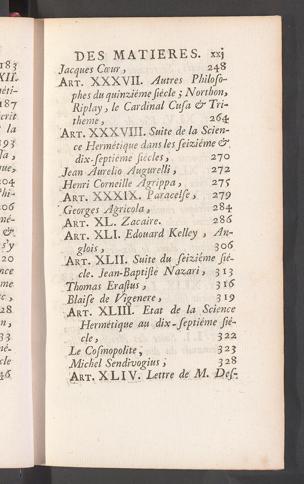 DES MATIERES. xxj
Jacques Cœur, 248
ART. XXXVII. Autres Philoso-
phes du quinziéme siécle; Northon,
Riplay, le Cardinal Cusa & Tri-
theme, 264
ART. XXXVIII. Suite de la Scien-
ce Hermétique dans les seiziéme &
dix-septiéme siécles, 270
Jean Aurelio Augurelli, 272
Henri Corneille Agrippa, 275
ART. XXXIX. Paracelse, 279
Georges Agricola, 284
ART. XL. Zacaire. 286
ART. XLI. Edouard Kelley, An-
glois, 306
ART. XLII. Suite du seiziéme sié-
cle. Jean-Baptiste Nazari, 313
Thomas Erastus, 316
Blaise de Vigenere, 319
ART. XLIII. Etat de la Science
Hermétique au dix-septiéme sié-
cle, 322
Le Cosmopolite, 323
Michel Sendivogius, 328
ART. XLIV. Lettre de M. Des-